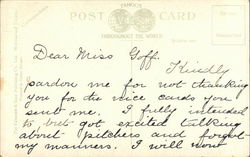 FAMOUS
POST CARD
THROUGHOUT THE WORLD
Dear Miss Goff.
Kindly
pardon me for not thanking
you for the nice cards you
sent me. I fully intended
to but got excited talking
about pitchers and forgot
my manners. I will want